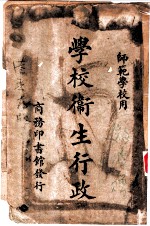 師範學校用
學校衛生行政
商務印書館發行